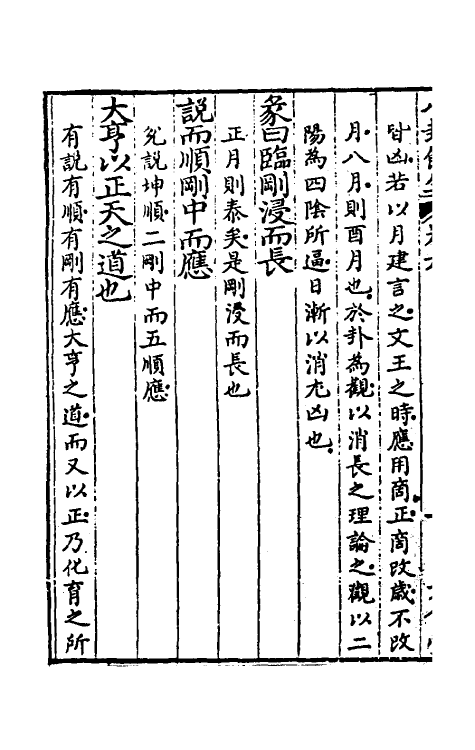 皆凶若以月建言之文王之時應用商正商改歲不改
月八月則酉月也於卦為觀以消長之理論之觀以二
陽為四陰所逼日漸以消尤凶也
彖曰臨剛浸而長
正月則泰矣是剛浸而長也
說而順剛中而應
兌說坤順二剛中而五順應
大亨以正天之道也
有說有順有剛有應大亨之道而又以正乃化育之所